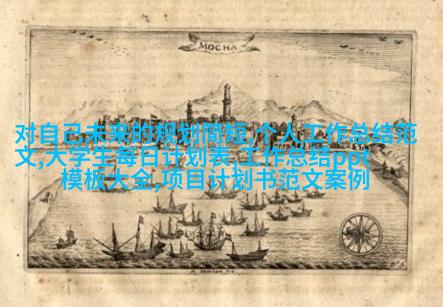 MOCHA
对自己未来的规划简短,个人工作总结范
文,大学生每日计划表,工作总结ppt
模板大全,项目计划书范文案例